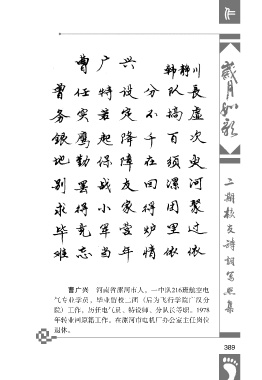 曹广兴 韩静川
曾任特设分队長
务实若定不搞虚
銀鹰起降千百次
地勤保障在须臾
别罢战友回漯河
求得小家得团聚
毕竟军营炉里过
难忘当年情依依
曹广兴 河南省漯河市人。一中队216班航空电
气专业学员。毕业留校二团（后为飞行学院广汉分
院）工作。历任电气员、特设师、分队长等职。1978
年转业回原籍工作。在漯河市电机厂办公室主任岗位
退休。
歲月如歌
二期校友诗词写照集
389